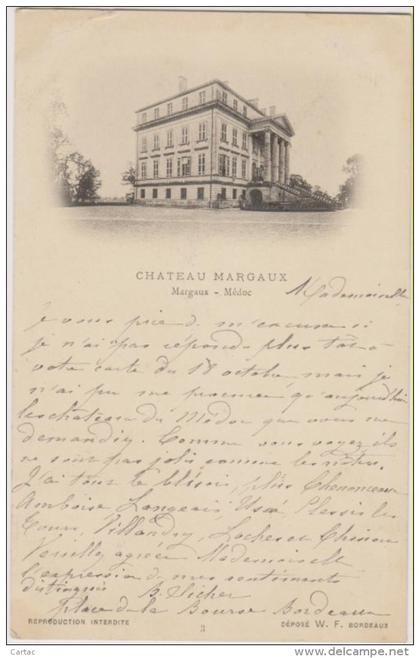 CHATEAU MARGAUX
Margaux - Médoc
Mademoiselle
je vous prie d. m'excuser si
je n'ai pas répondu plus tôt à
votre carte du 18 octobre mais je
n'ai pu me procurer qu'aujourd'hui
les chateaux du Médoc que vous me
demandiez. Comme vous voyez ils
ne sont pas jolis comme les nôtres.
J'ai tout le blésois, plus Chenonceaux
Amboise Langeais, Ussé Plessis les
Tours, Villandry, Loches et Chinon
Veuillez agréer Mademoiselle
l'expression de mes sentiments
distingués
Place de la Bourse Bordeaux
REPRODUCTION INTERDITE
3
DÉPOSÉ W. F. BORDEAUX
Cartac
http://www.delcampe.net